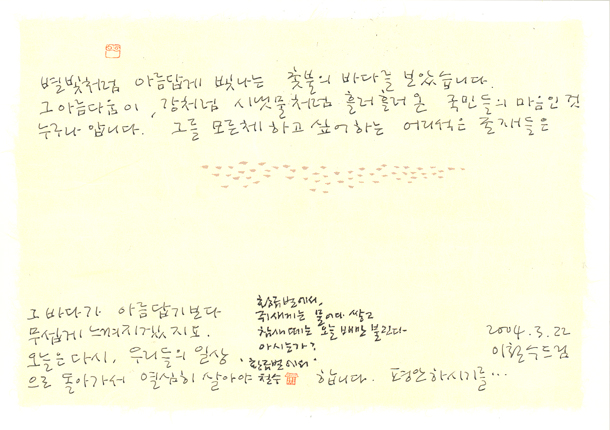 별빛처럼 아름답게 빛나는 촛불의 바다를 보았습니다.
그 아름다움이, 강처럼 시냇물처럼 흘러 흘러 온 국민들의 마음인 것
누구나 압니다. 그를 모른체 하고 싶어하는 어리석은 존재들은
그 바다가 아름답기보다
무섭게 느껴지겠지요.
오늘은 다시, 우리들의 일상
으로 돌아가서 열심히 살아야 합니다. 평안하시기를…
황류벌에서,
쥐새끼는 물어다 쌓고
참새떼는 오늘 배만 불린다
아시는가?
·황류벌에서·
철수
2004.3.22
이철수드림